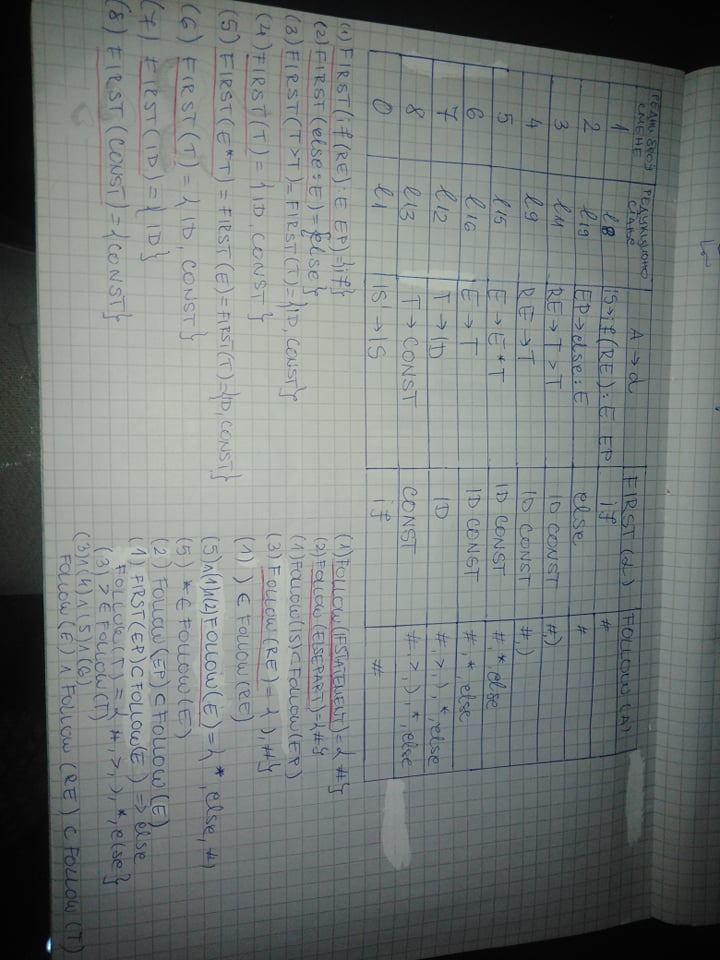 РЕДНИ БРОЈ СМЕНЕ РЕДУКЦИОНО СТАЊЕ A → α FIRST(α) FOLLOW(A)
1 l8 IS→if(RE):E EP if #
2 l19 EP→else:E else #
3 l11 RE→T>T ID CONST #,)
4 l9 RE→T ID CONST #)
5 l15 E→E*T ID CONST #,*,else
6 l16 E→T ID CONST #,*,else
7 l12 T→ID ID #,>,),*,else
8 l13 T→CONST CONST #,>,),*,else
0 l1 IS'→IS if #
(1) FIRST(if(RE):E EP)={if}
(2) FIRST(else:E)={else}
(3) FIRST(T>T)=FIRST(T)={ID,CONST}
(4) FIRST(T)={ID,CONST}
(5) FIRST(E*T)=FIRST(E)=FIRST(T)={ID,CONST}
(6) FIRST(T)={ID,CONST}
(7) FIRST(ID)={ID}
(8) FIRST(CONST)={CONST}
(1) FOLLOW(IFSTATEMENT)={#}
(2) FOLLOW(ELSEPART)={#}
(1) FOLLOW(IS)⊂FOLLOW(EP)
(3) FOLLOW(RE)={),#}
(1) ) ∈ FOLLOW(RE)
(5)∧(1)∧(2) FOLLOW(E)={*,else,#}
(5) * ∈ FOLLOW(E)
(2) FOLLOW(EP)⊂FOLLOW(E)
(1) FIRST(EP)⊂FOLLOW(E) ⇒ else
FOLLOW(T)={#,>,),*,else}
(3) > ∈ FOLLOW(T)
(3)∧(4)∧(5)∧(6)
FOLLOW(E)∧FOLLOW(RE)⊂FOLLOW(T)